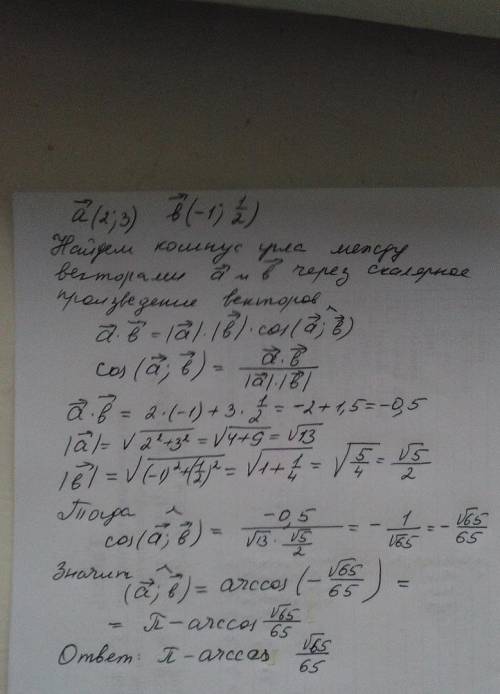 a⃗(2; 3) b⃗(-1; 1/2)
Найдем косинус угла между
векторами a⃗ и b⃗ через скалярное
произведение векторов
a⃗ · b⃗ = |a⃗| · |b⃗| · cos(a⃗; b⃗)
cos(a⃗; b⃗) = a⃗ · b⃗ / |a⃗| · |b⃗|
a⃗ · b⃗ = 2 · (-1) + 3 · 1/2 = -2 + 1,5 = -0,5
|a⃗| = √(2² + 3²) = √(4 + 9) = √13
|b⃗| = √((-1)² + (1/2)²) = √(1 + 1/4) = √(5/4) = √5/2
Тогда
cos(a⃗; b⃗) = -0,5 / (√13 · √5/2) = - 1/√65 = - √65/65
Значит
(a⃗; b⃗) = arccos(- √65/65) =
= π - arccos √65/65
Ответ: π - arccos √65/65